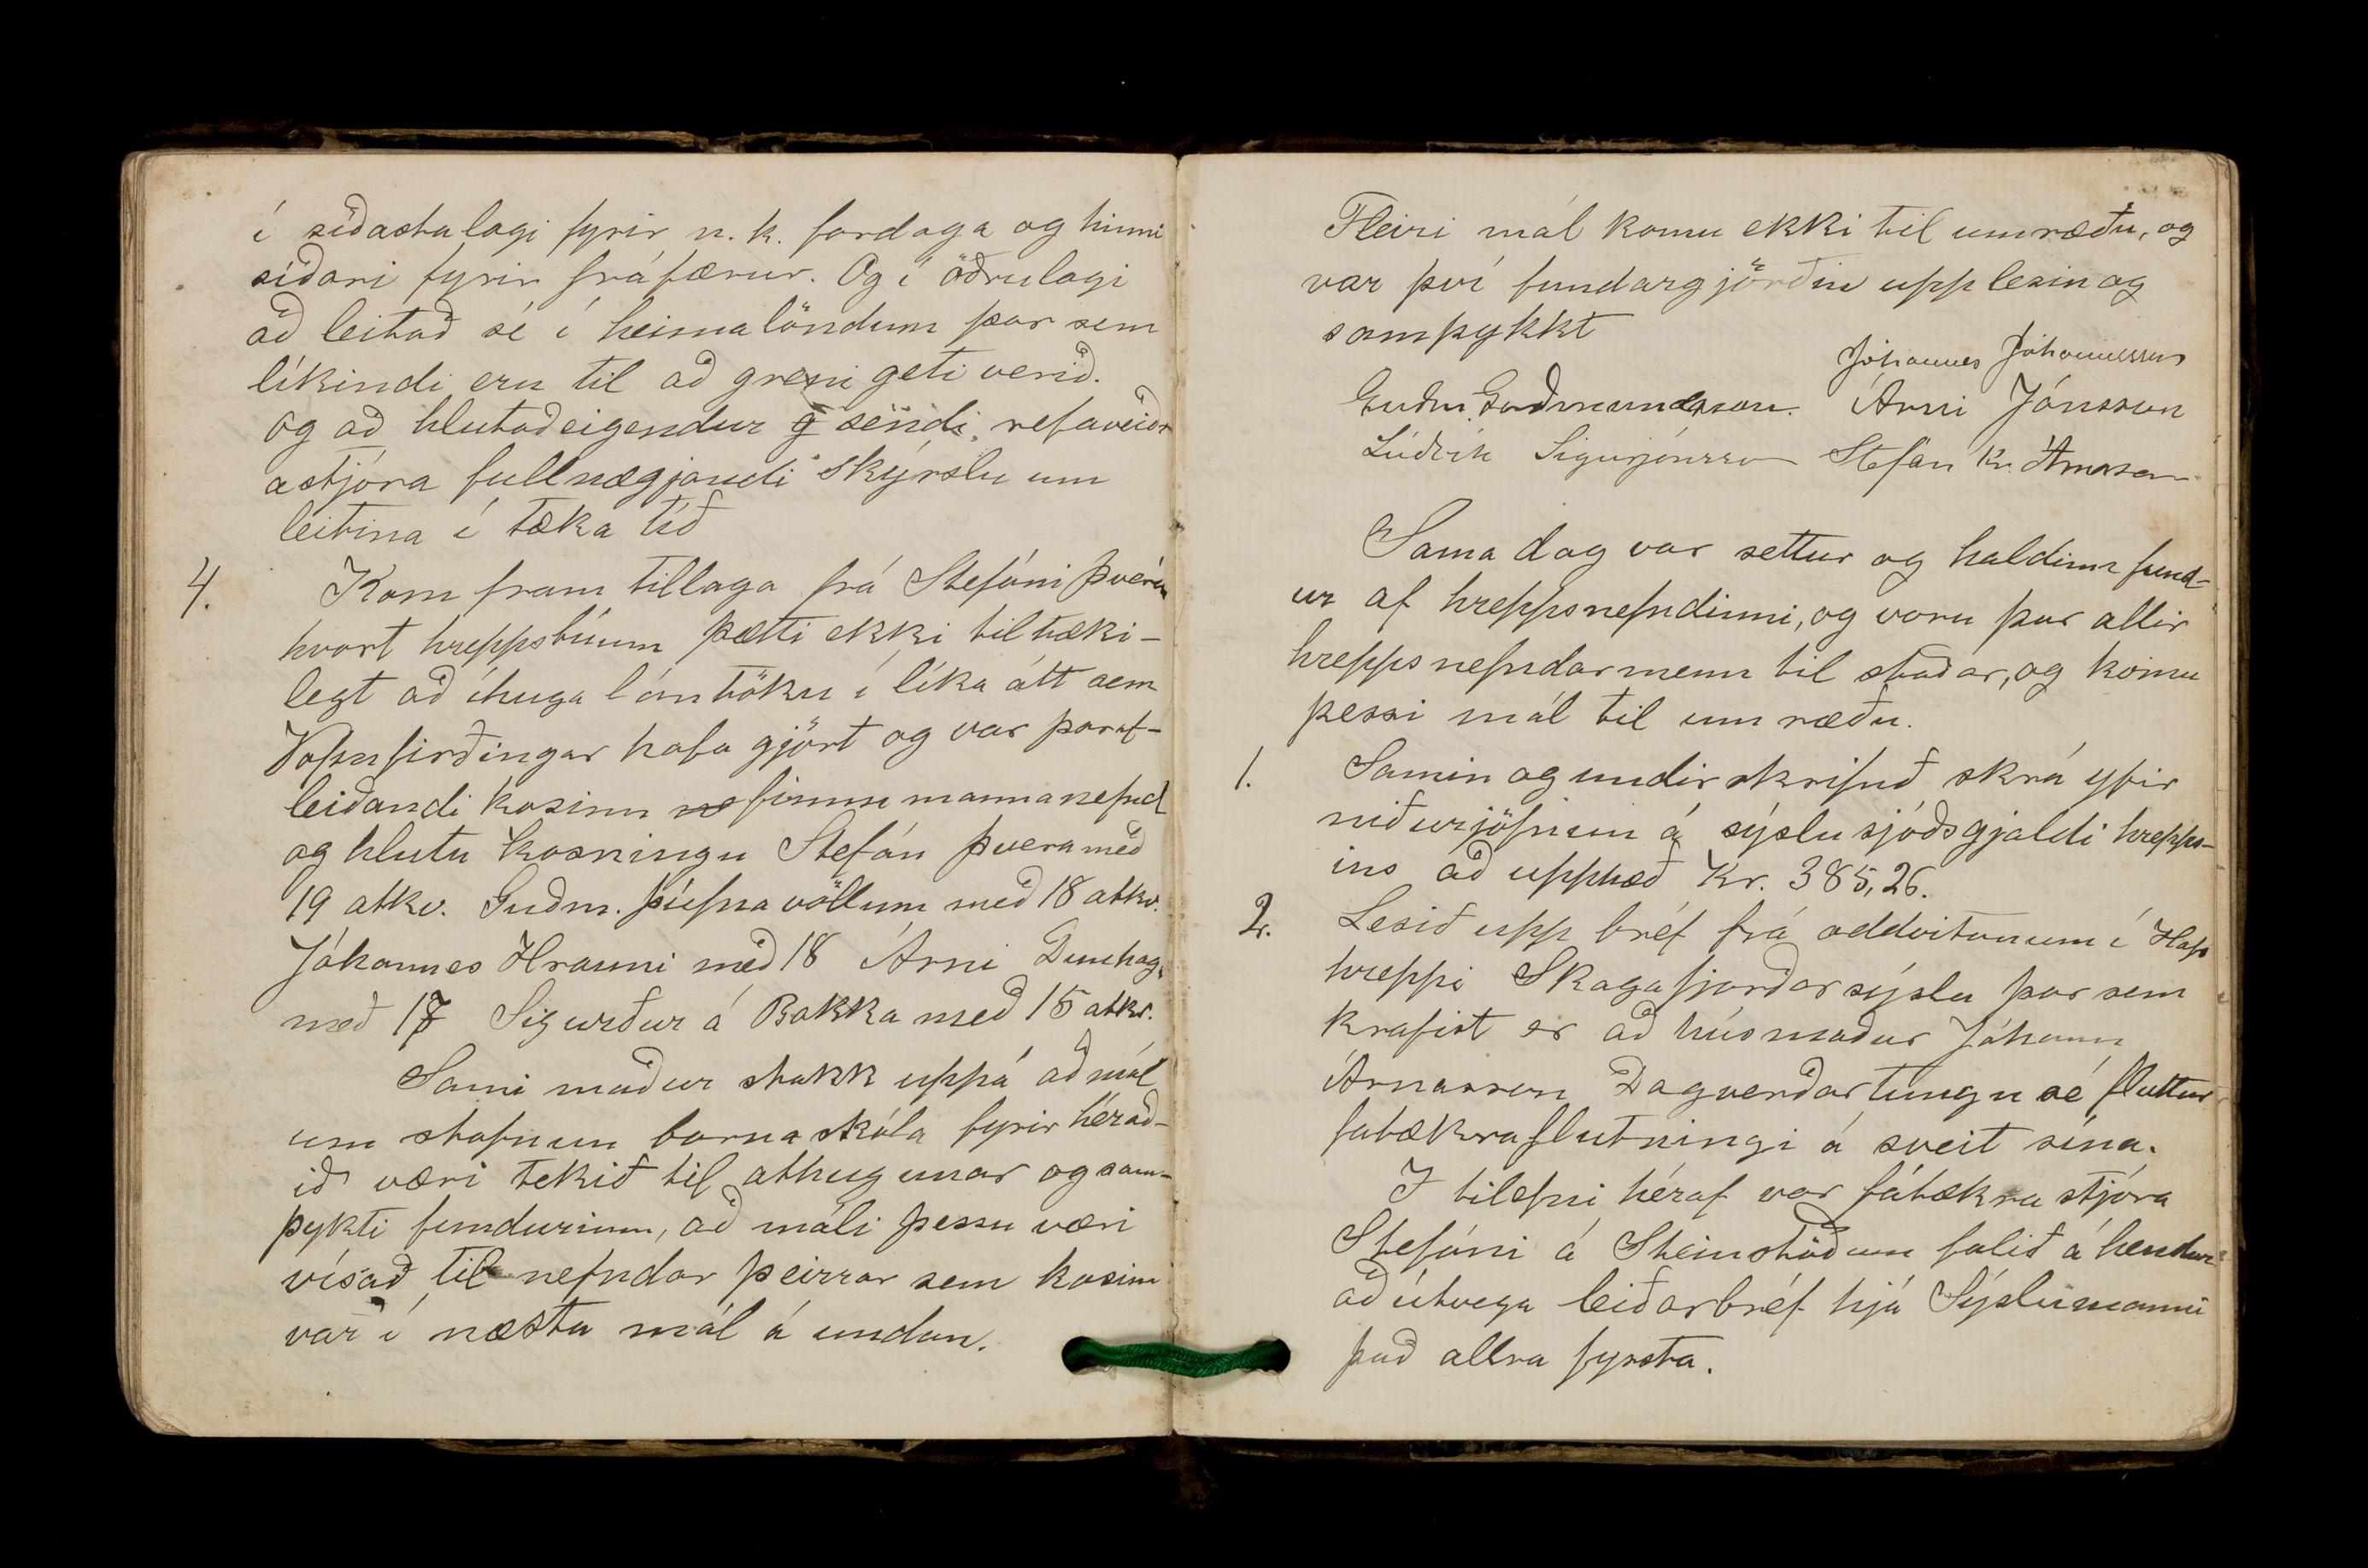 í síðastalagi fyrir n.k. fardaga og hinni
síðari fyrir fráfærur. Og í öðrulagi
að leitað sé í heimalöndum þar sem
líkindi eru til að greni geti verið.
og að hlutaðeigendur sendi refaveiðr
astjóra fullnægjandi skýrslu um
leitina í tæka tíð
4. Kom fram tillaga frá Stefáni Þverá
hvort hreppsbúum þætti ekki tiltæki-
legt að íhuga lántöku í líka átt sem
Vopnfirðingar hafa gjört og var þaraf-
leiðandi kosinn fimm mannanefnd
og hlutu kosningu Stefán Þvera með
19 atkv. Guðm. Þúfnavöllum með 18 atkv.
Jóhannes Hrauni með 18 Árni Dunhaga
með 17 Sigurður á Bakka með 15 atkv.
Sami maður stakk uppá að mál
um stofnun barnaskóla fyrir hérað-
ið væri tekið til athugunar og sam-
þykti fundurinn, að máli þessu væri
vísað til nefndar þeirrar sem kosin
var í næsta mál á undan.
Fleiri mál komu ekki til umræðu, og
var því fundargjörðin upplesin og
samþykkt
Jóhannes Jóhannesson
Guðm. Guðmundsson. Árni Jónsson
Lúðvík Sigurjónsson Stefán Kr. Árnason
Sama dag var settur og haldinn fund-
ur af hreppsnefndinni, og voru þar allir
hreppsnefndarmenn til staðar, og komu
þessi mál til umræðu.
1. Samin og undirskrifuð skrá yfir
niðurjöfnun á sýslusjóðsgjaldi hrepps-
ins að upphæð Kr. 385,26.
2. Lesið upp bréf frá oddvitanum í Hofs
hreppi Skagafjarðarsýslu þar sem
krafist er að húsmaður Jóhann
Árnasson Dagverðartungu sé fluttur
fátækraflutningi á sveit sína.
I tilefni héraf var fátækrastjóra
Stefáni á Steinstöðum falið á hendur
að útvega leiðarbréf hjá Sýslumanni
það allra fyrsta.